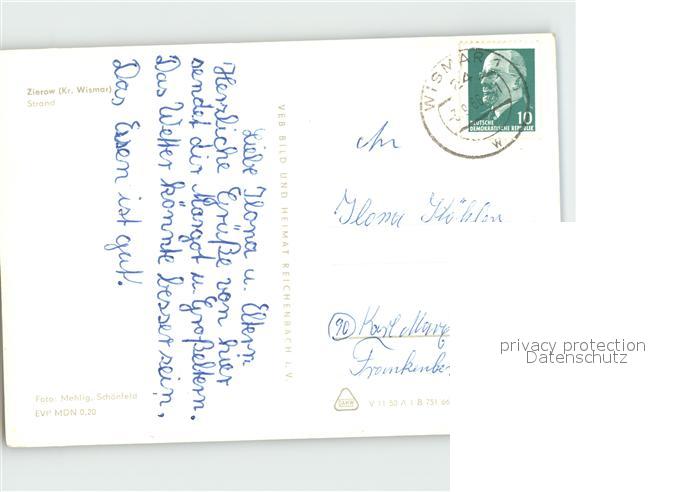 Zierow (Kr. Wismar)
Strand
Liebe Ilona u. Eltern
Herzliche Grüße von hier
sendet dir Margot u. Großeltern.
Das Wetter könnte besser sein,
Das Essen ist gut.
Foto: Mehlig, Schönfeld
EVP MDN 0,20
VEB BILD UND HEIMAT REICHENBACH i. V.
WISMAR
24
W
10
DEUTSCHE
DEMOKRATISCHE REPUBLIK
Ilona
(90) Karl Marx
Frankenber
V 11 50 A 1 B 751 66
privacy protection
Datenschutz